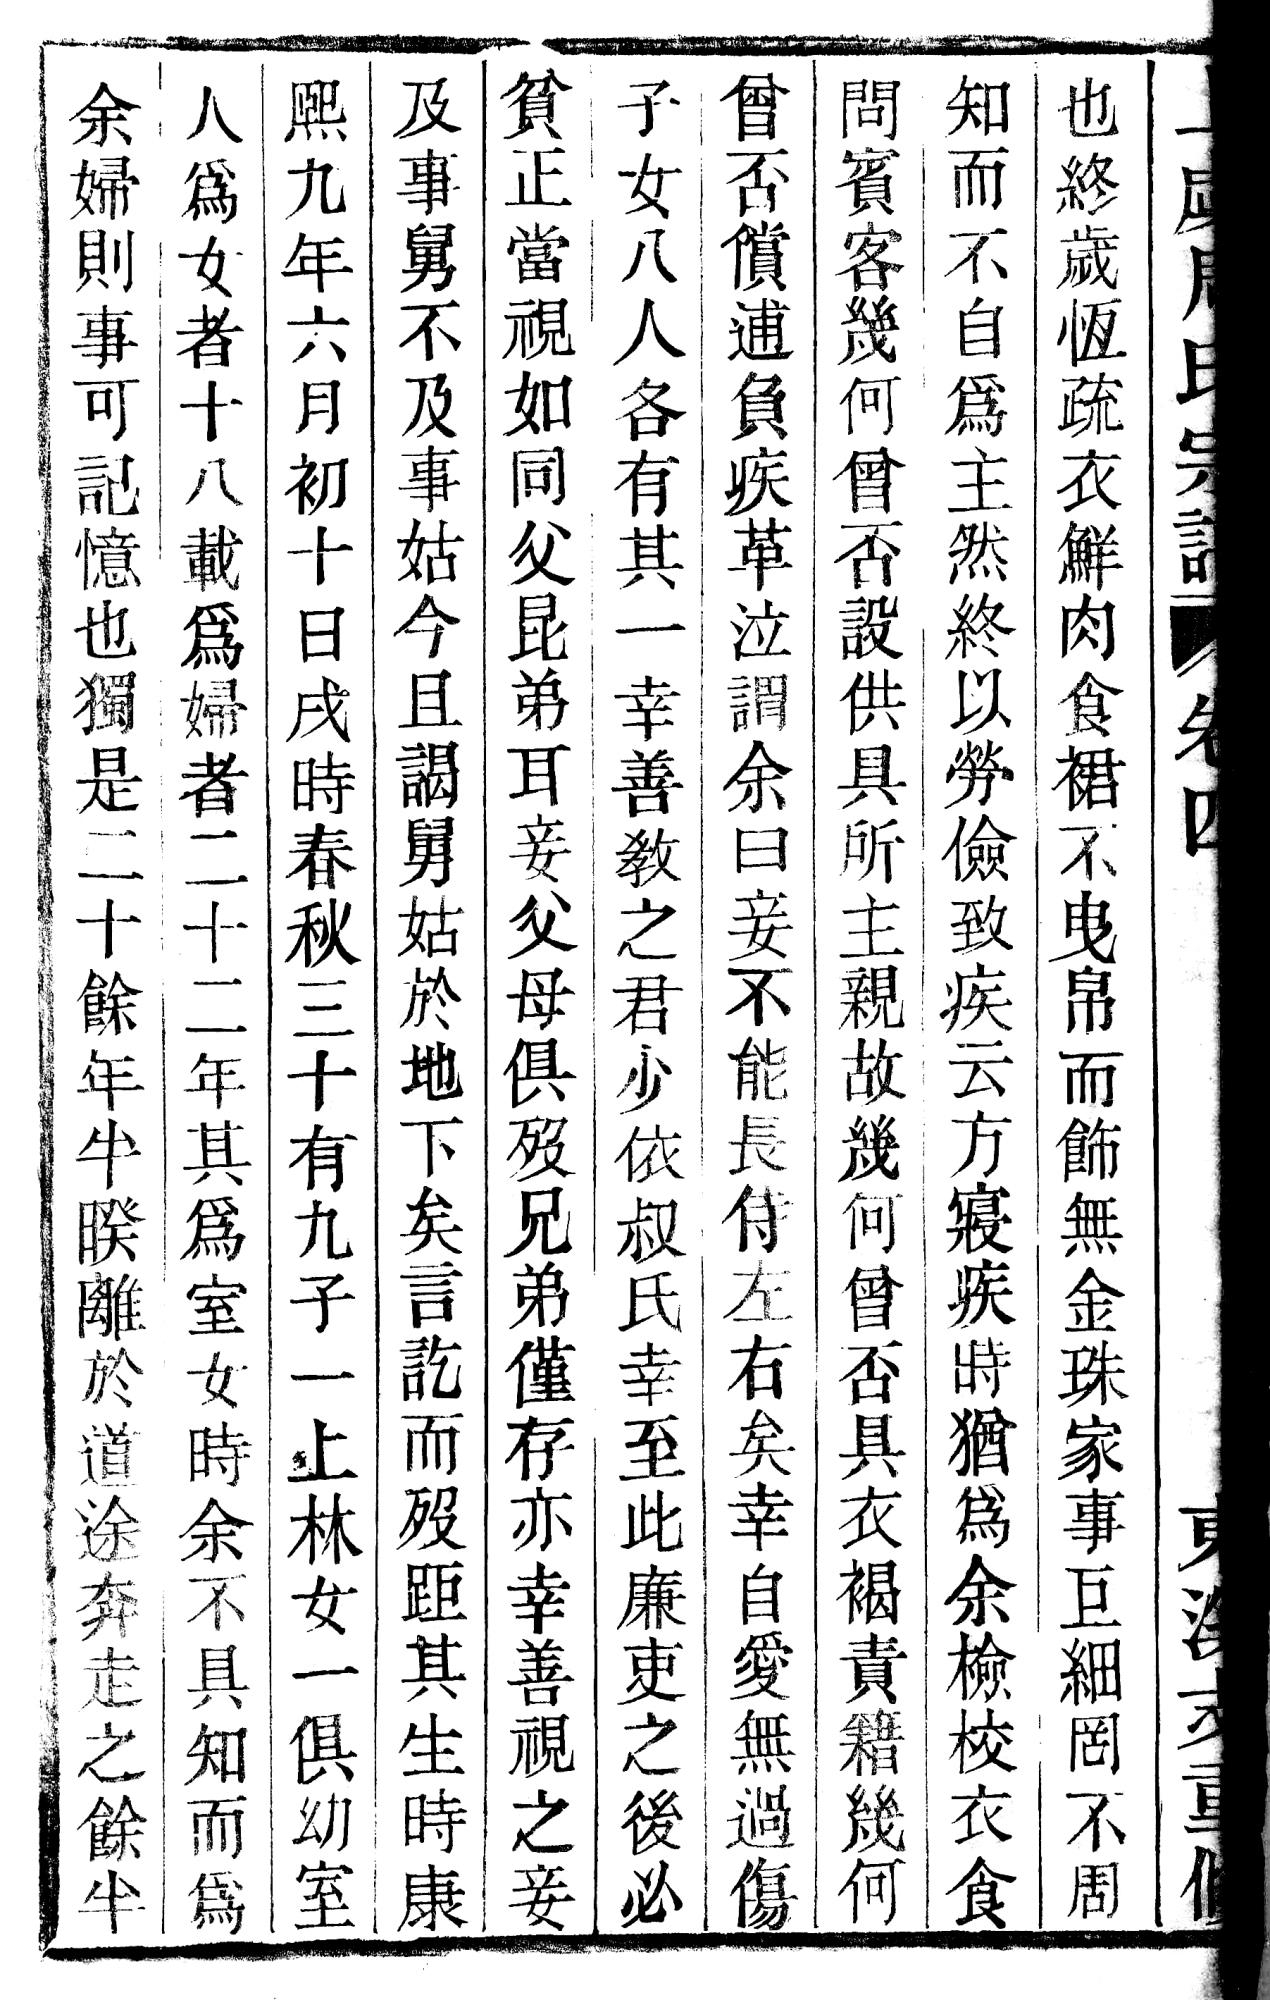 也終歲恆疏衣鮮肉食裙不曳帛而飾無金珠家事巨細罔不周
知而不自爲主然終以勞儉致疾云方寢疾時猶爲余檢校衣食
問賓客幾何曾否設供具所主親故幾何曾否具衣褐責籍幾何
曾否償逋負疾革泣謂余曰妾不能長侍左右矣幸自愛無過傷
子女八人各有其一幸善教之君少依叔氏幸至此廉吏之後必
貧正當視如同父昆弟耳妾父母俱歿兄弟僅存亦幸善視之妾
及事舅不及事姑今且謁舅姑於地下矣言訖而歿距其生時康
熙九年六月初十日戌時春秋三十有九子一上林女一俱幼室
人爲女者十八載爲婦者二十二年其爲室女時余不具知而爲
余婦則事可記憶也獨是二十餘年半暌離於道途奔走之餘半
氏宗譜 卷四